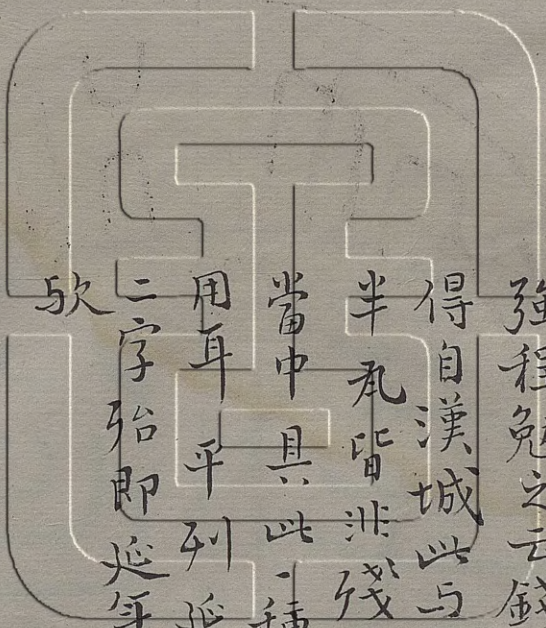 強程勉之云錢
得自漢城此与
半瓦皆非殘
當中具此一種
用耳 平列延
二字殆即延年
欤